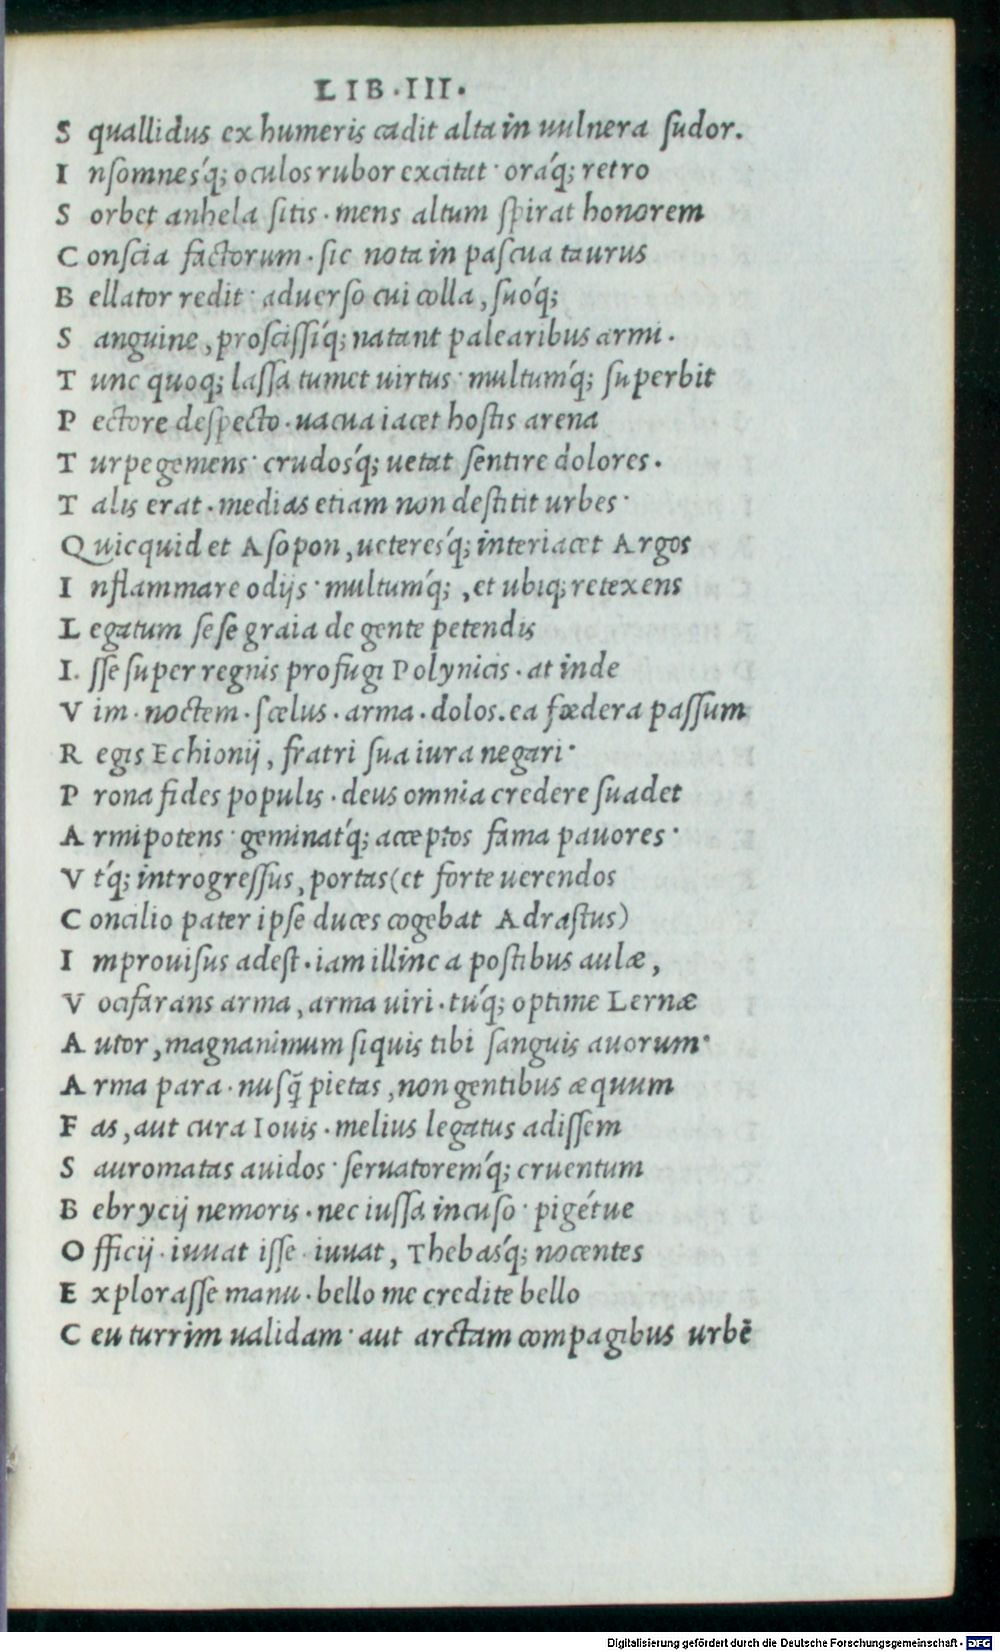 LIB·III·
S quallidus ex humeris cadit alta in uulnera ſudor.
I nſomneśq; oculos rubor excitat· oráq; retro
S orbet anhela ſitis· mens altum ſpirat honorem
C onſcia factorum· ſic nota in paſcua taurus
B ellator redit· aduerſo cui colla, ſuóq;
S anguine, proſciſſíq; natant palearibus armi.
T unc quoq; laſſa tumet uirtus· multumq́; ſuperbit
P ectore deſpecto· uacua iacet hoſtis arena
T urpe gemens· crudośq; uetat ſentire dolores.
T alis erat· medias etiam non deſtitit urbes·
Q uicquid et Aſopon, uetereśq; interiacet Argos
I nflammare odijs· multumq́; , et ubiq; retexens
L egatum ſeſe graia de gente petendis
I. ſſe ſuper regnis profugi Polynicis· at inde
V im· noctem· ſcelus· arma· dolos. ea fœdera paſſum
R egis Echionij, fratri ſua iura negari·
P rona fides populis· deus omnia credere ſuadet
A rmipotens· geminatq́; acceptos fama pauores·
V tq́; introgreſſus, portas (et forte uerendos
C oncilio pater ipſe duces cogebat Adraſtus)
I mprouiſus adeſt· iam illinc a poſtibus aulæ,
V ociferans arma, arma uiri· túq; optime Lernæ
A utor, magnanimum ſiquis tibi ſanguis auorum·
A rma para· nuſq̃ pietas, non gentibus æquum
F as, aut cura Iouis· melius legatus adiſſem
S auromatas auidos· ſeruatoremq́; cruentum
B ebrycij nemoris· nec iuſſa incuſo· pigétue
O fficij· iuuat iſſe· iuuat, Thebaśq; nocentes
E xploraſſe manu· bello me credite bello
C eu turrim ualidam· aut arctam compagibus urbē
Digitalisierung gefördert durch die Deutsche Forschungsgemeinschaft - DFG